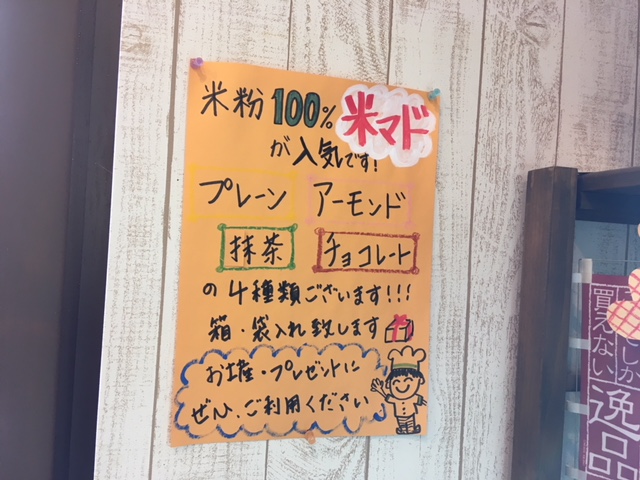 米粉100%
米マド
が人気です!
プレーン アーモンド
抹茶 チョコレート
の4種類ございます!!!
箱・袋入れ致します
お土産・プレゼントに
ぜひ、ご利用ください
しか
買えない
逸品